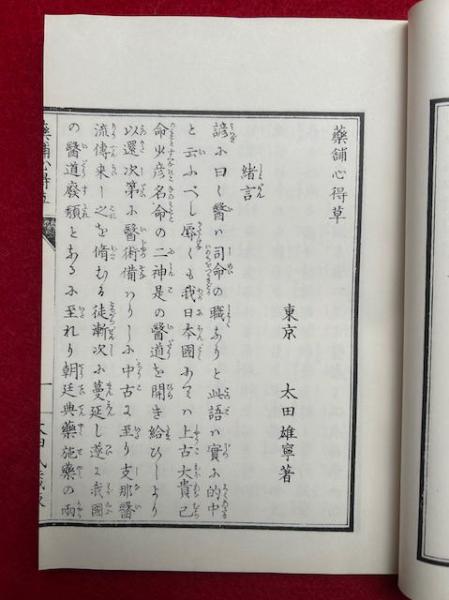 藥舗心得草
東京 太田雄寧著
緒言
諺ふ曰く醫ハ司命の職ありと此語ハ實ふ的中
と云ふべし辱くも我日本國あてハ上古大貴己
命少彦名命の二神是の醫道を開き給ひしより
以還次第ふ醫術備ハりしふ中古に至り支那醫
流傳來しこを脩むる徒漸次ふ蔓延し遂に我國
の醫道廢頽とあるふ至れり朝廷典藥施藥の兩
藥舗心得草